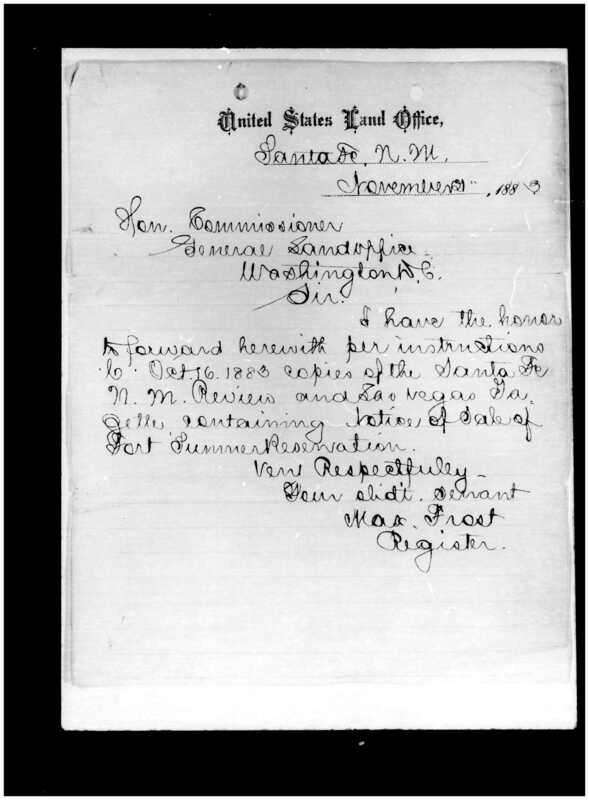 United States Land Office,
Santa Fe, N. M.
November 21", 1883
Hon. Commissioner
General Landoffice
Washington D. C.
Sir.
I have the honor
to forward herewith per instructions
C. Oct. 16. 1883 copies of the Santa Fe
N. M. Review and Las Vegas Ga-
zette containing Notice of Sale of
Fort Sumner Reservation.
Very Respectfully
Your obdt. servant
Max. Frost
Register.